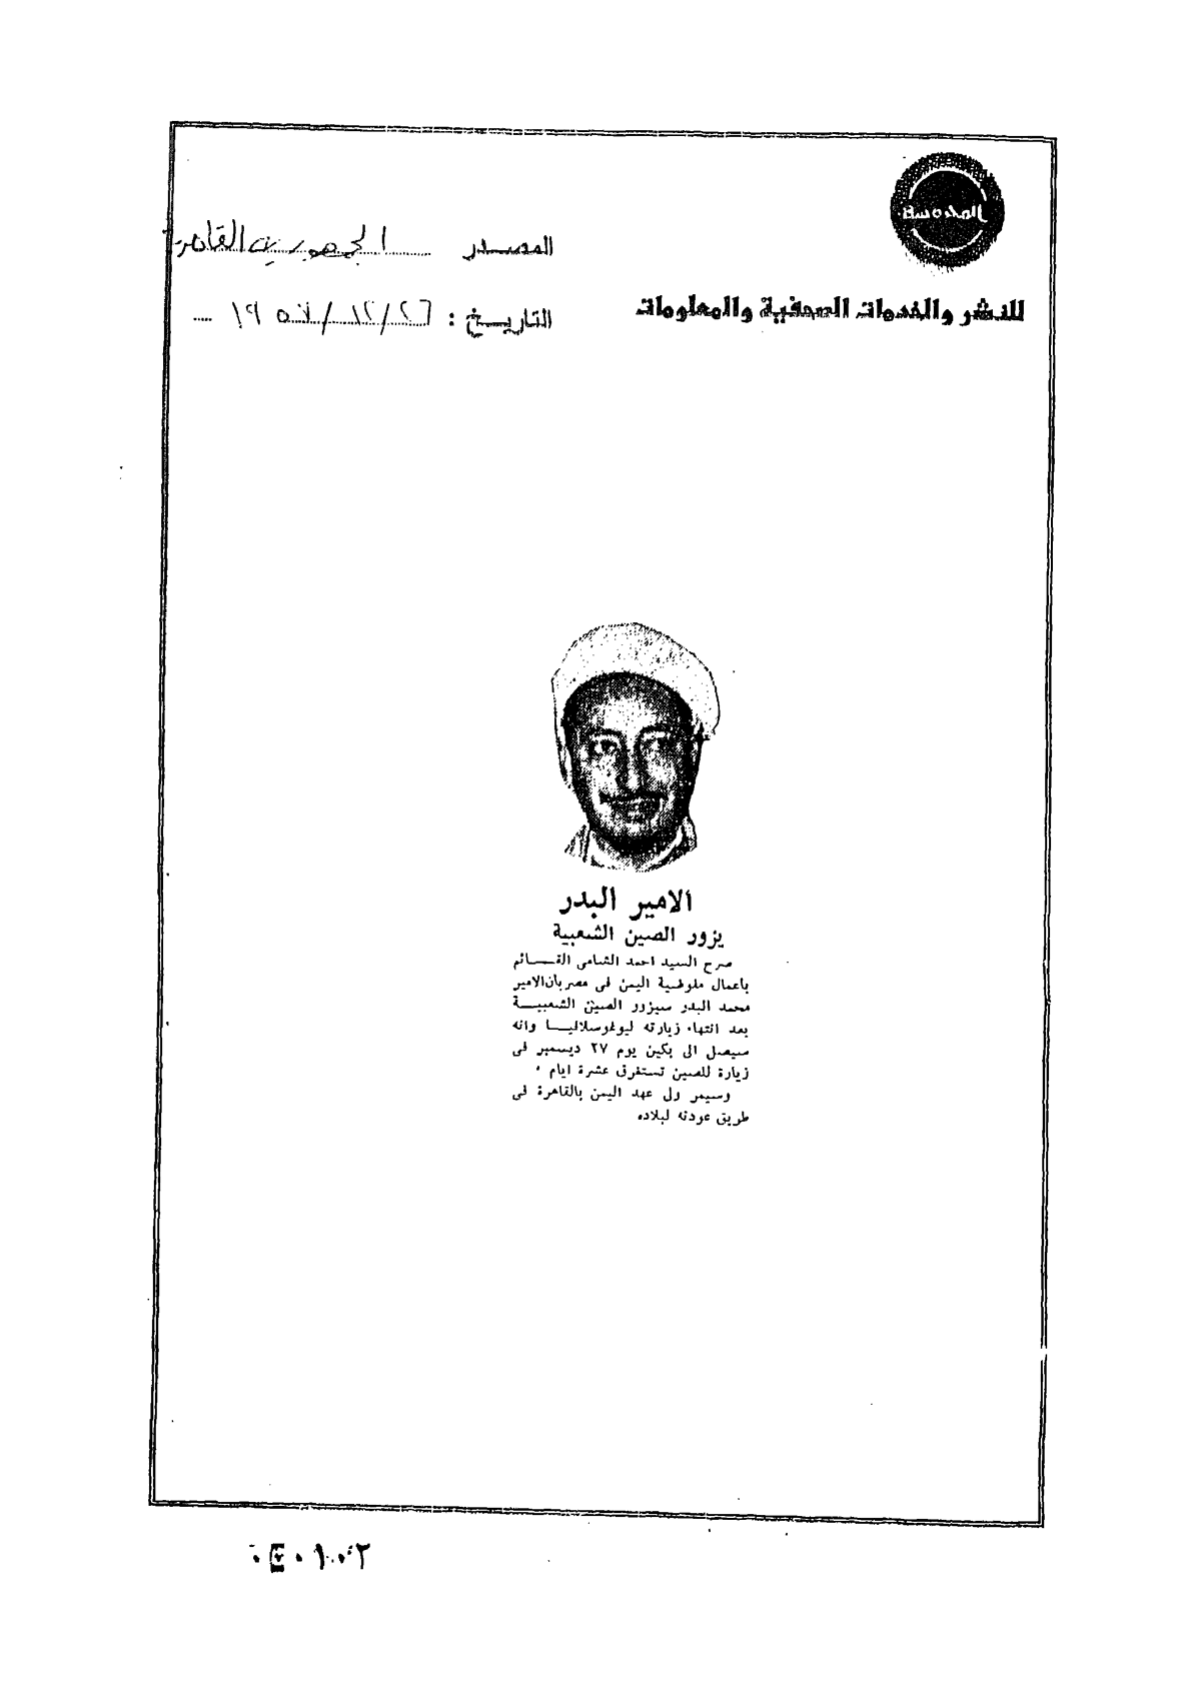 المحروسة
للنشر والخدمات الصحفية والمعلومات
المصدر الجمهورية القاهرية
التاريخ : ٢٦/١٢/١٩٥٧
الامير البدر
يزور الصين الشعبية
صرح السيد احمد الشامى القــــائم
باعمال مفوضية اليمن فى مصر بان الامير
محمد البدر سيزور الصين الشعبيــة
بعد انتهاء زيارته ليوغوسلافيــا وانه
سيصل الى بكين يوم ٢٧ ديسمبر فى
زيارة للصين تستغرق عشرة ايام ٠
وسيمر ولى عهد اليمن بالقاهرة فى
طريق عودته لبلاده